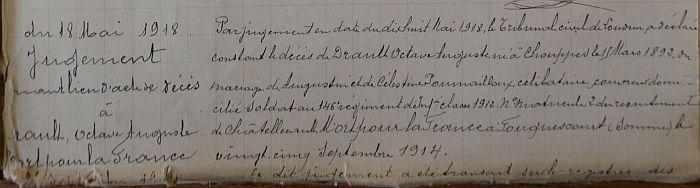 du 18 Mai 1918.
Jugement
nant lieu d'acte de décès
à
rault, Octave Auguste
ort pour la France
Par jugement en date du dix huit Mai 1918, le Tribunal civil de Loudun a déclaré
constant le décès de Drault Octave Auguste né à Chouppes le 15 Mars 1892, du
mariage d'Augustin et de Célestine Pournailloux, célibataire, couvreur domi-
cilié Soldat au 146e régiment d'Infie classe 1912. No matricule 2 du recrutement
de Châtellerault Mort pour la France à Fouquescourt (Somme) le
vingt. cinq Septembre 1914.
Le dit jugement a été transcrit sur les registres des